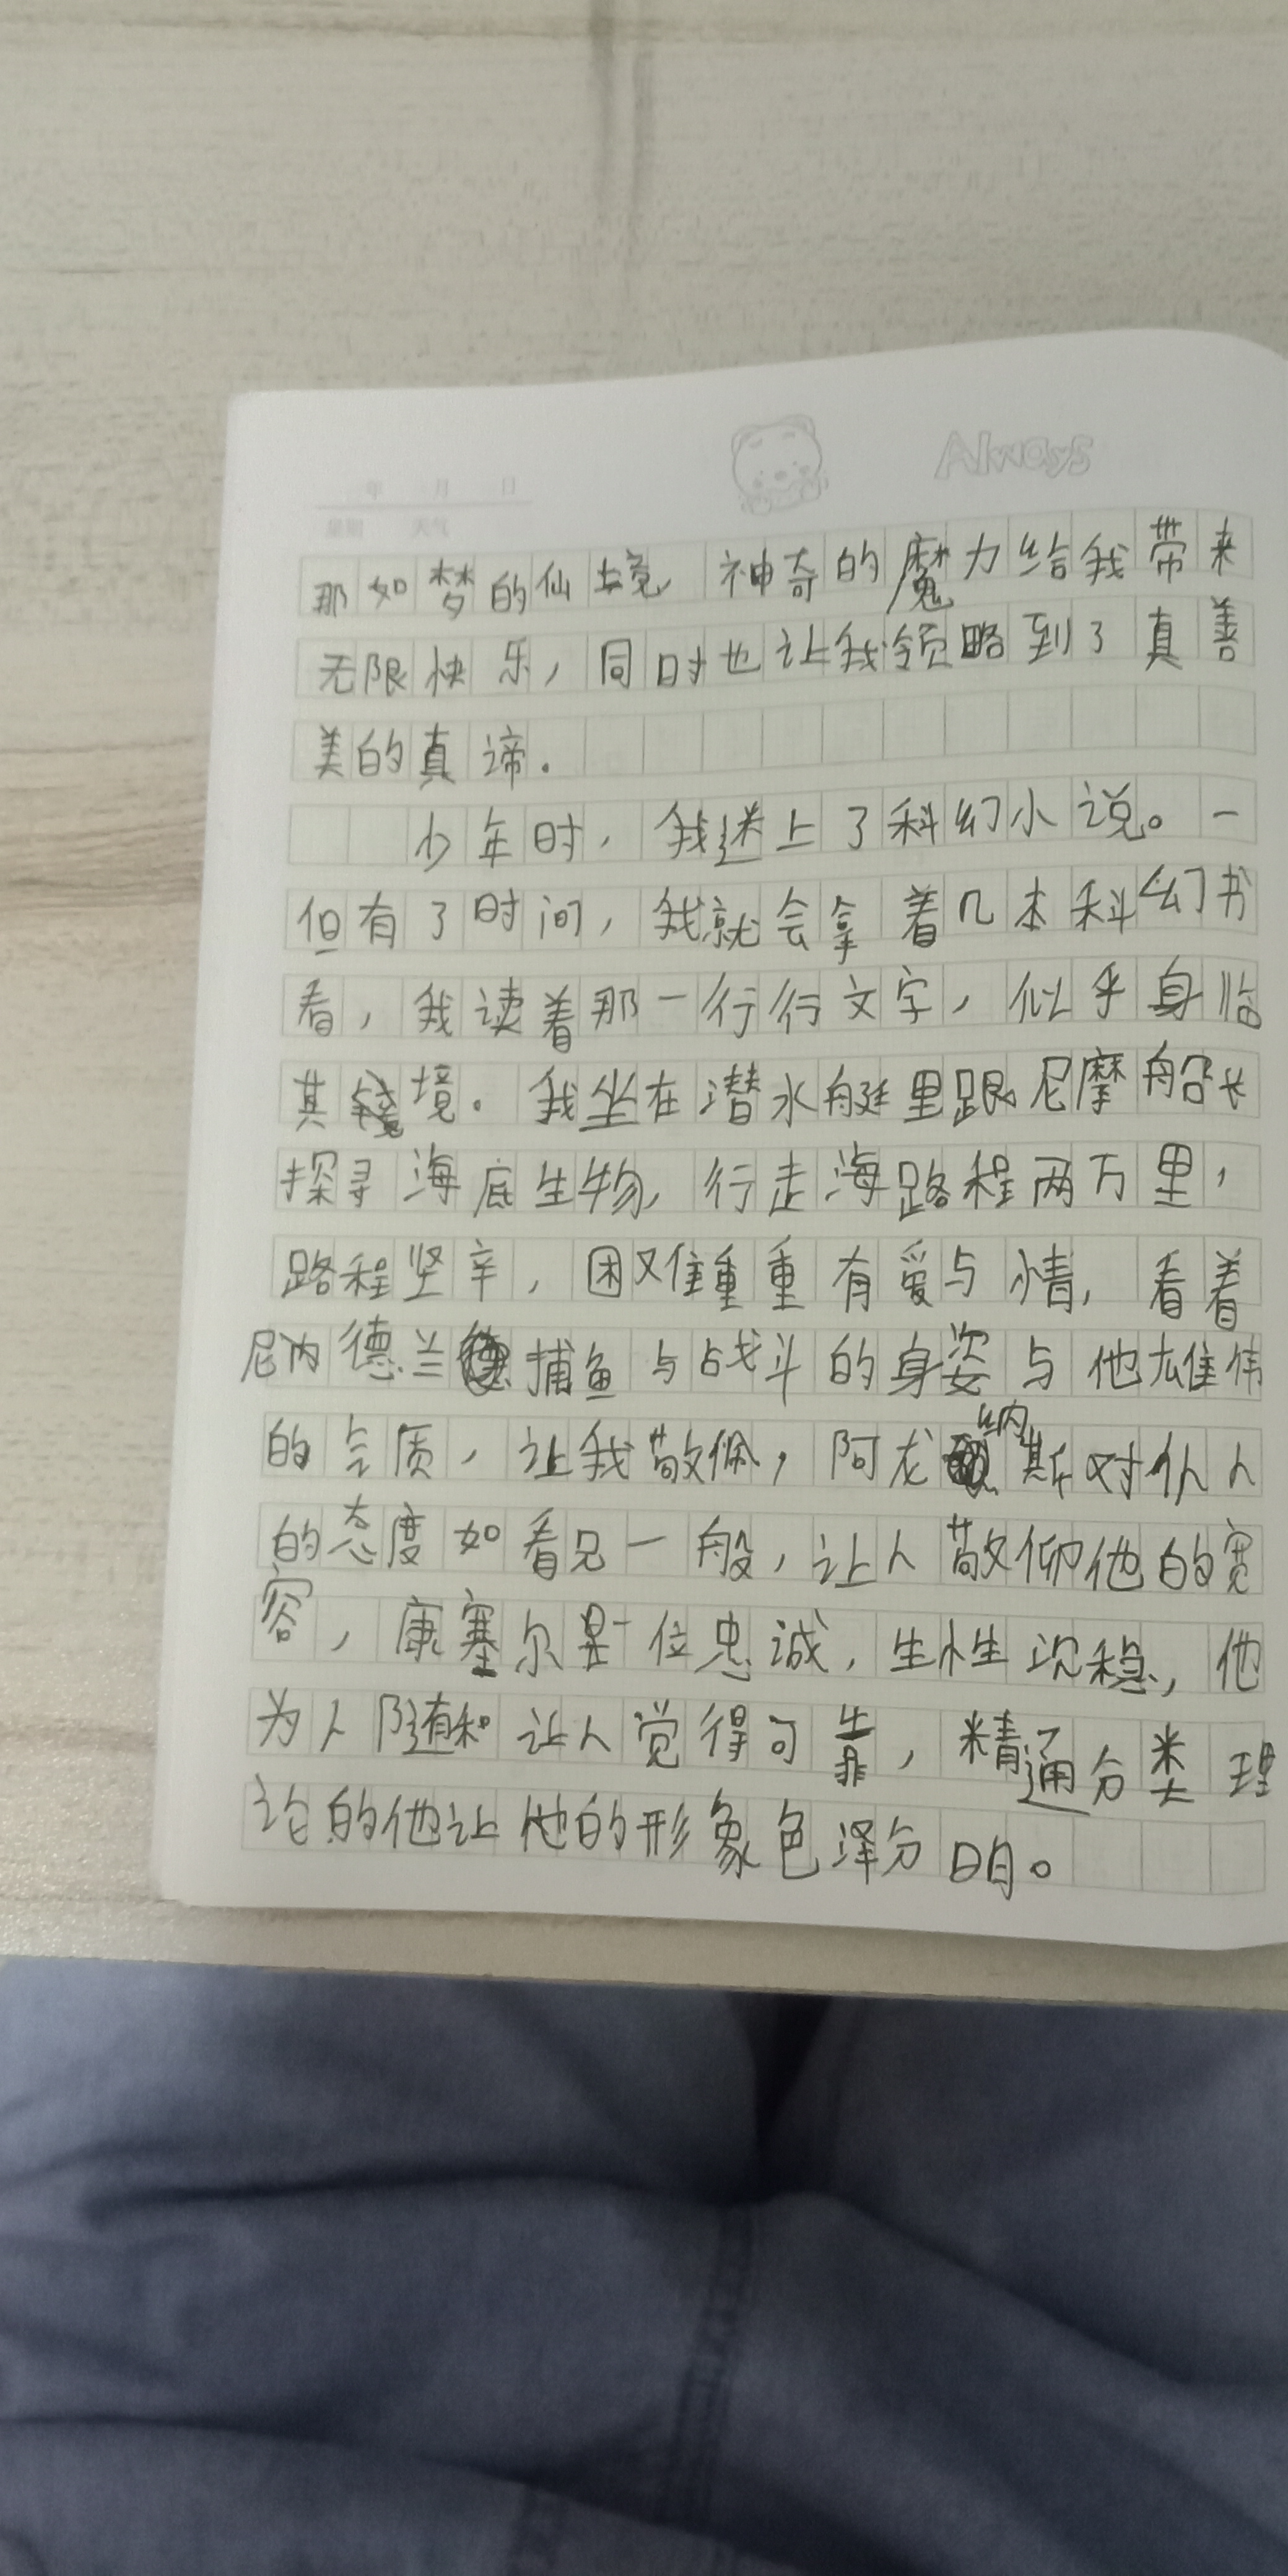 年 月 日
星期 天气
Always
那如梦的仙境,神奇的魔力给我带来
无限快乐,同时也让我领略到了真善
美的真谛.
少年时,我迷上了科幻小说。一
但有了时间,我就会拿着几本科幻书
看,我读着那一行行文字,似乎身临
其境.我坐在潜水艇里跟尼摩船长
探寻海底生物,行走海路程两万里,
路程坚辛,困难重重有爱与情,看着
尼内德兰捕鱼与战斗的身姿与他雄伟
的气质,让我敬佩,阿龙纳斯对仆人
的态度如看兄一般,让人敬仰他的宽
容,康塞尔是一位忠诚,生性沉稳,他
为人随和让人觉得可靠,精通分类理
论的他让他的形象色泽分明。